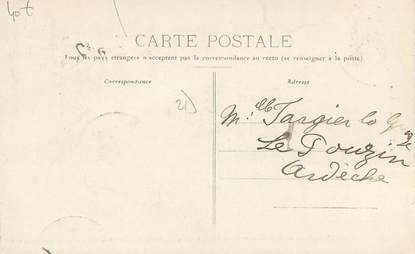 CARTE POSTALE
Tous les pays étrangers n'acceptent pas la correspondance au recto (se renseigner à la poste)
Correspondance
Adresse
21)
M.lle Targier
Le Pouzin
Ardèche